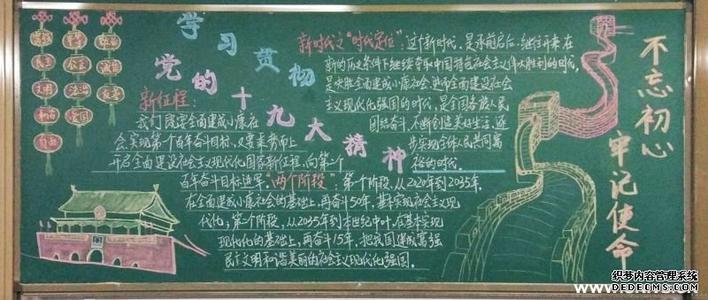 学习贯彻
党的十九大精神
新时代之"时代定位":这个新时代,是承前启后、继往开来在
新的历史条件下继续夺取中国特色社会主义伟大胜利的时代,
是决胜全面建成小康社会、进而全面建设社会
主义现代化强国的时代,是全国各族人民
团结奋斗、不断创造美好生活、逐
步实现全体人民共同富
裕的时代.
新征程:
我们既要全面建成小康社
会、实现第一个百年奋斗目标,又要乘势而上
开启全面建设社会主义现代化国家新征程,向第二个
百年奋斗目标进军."两个阶段":第一个阶段,从2020年到2035年,
在全面建成小康社会的基础上,再奋斗50年,基本实现社会主义现
代化;第二个阶段,从2035年到本世纪中叶,在基本实现
现代化的基础上,再奋斗15年,把我国建成富强
民主文明和谐美丽的社会主义现代化强国.
不忘初心
牢记使命
富强
民主
文明
和谐
自由
平等
公正
法治
爱国
敬业
诚信
友善